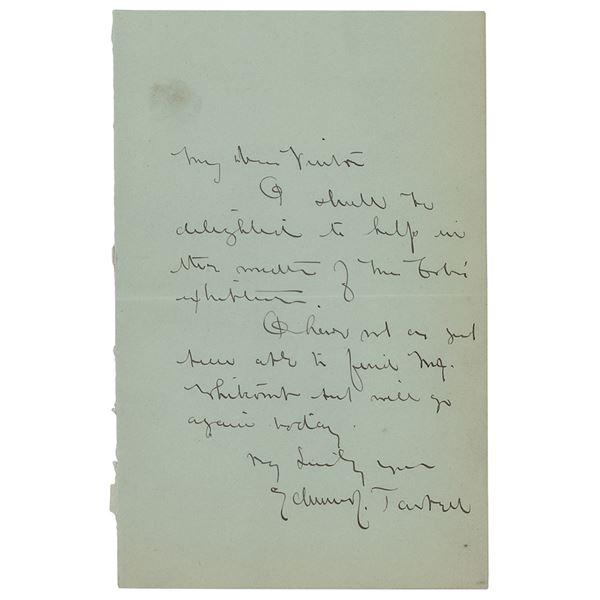 My dear Vinton
I shall be
delighted to help in
the matter of Mr
exhibition.
I have not as yet
been able to find Mr.
Whitcomb but will go
again today.
Very truly yours
Edmund C. Tarbell